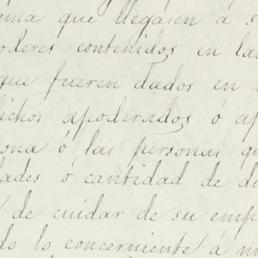 ma que llegasen á s
oderes contenidos en las
que fueren dados en
ichos apoderados ó ap
ona ó las personas qu
dades ó cantidad de di
de cuidar de su emp
do lo concerniente á m